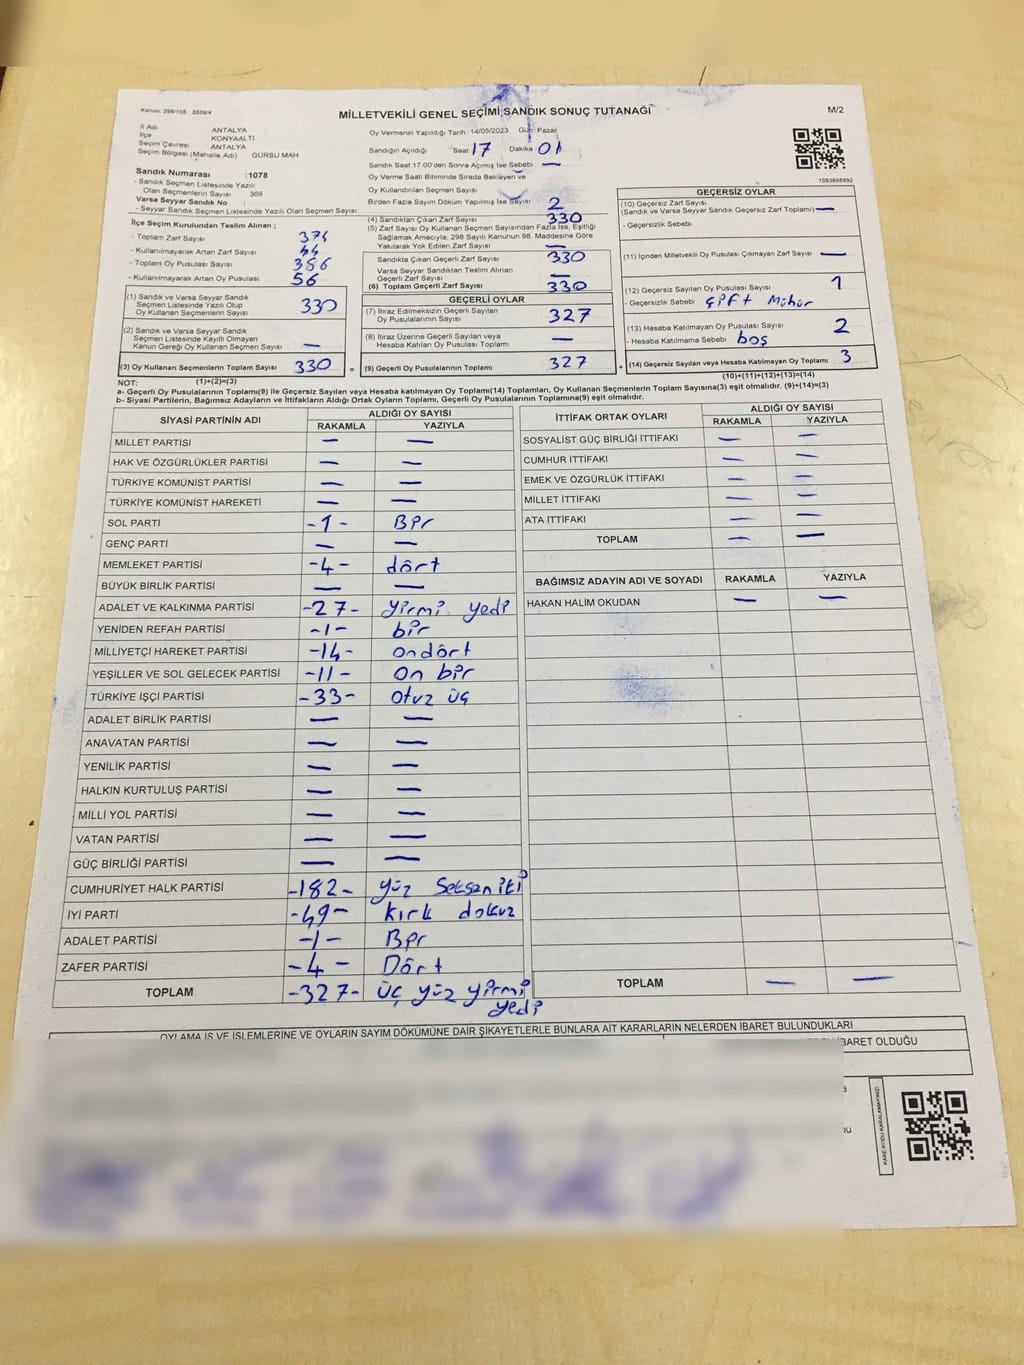 Kanun: 298/105 2839/4
MİLLETVEKİLİ GENEL SEÇİMİ SANDIK SONUÇ TUTANAĞI
M/2
İl Adı ANTALYA
İlçe KONYAALTI
Seçim Çevresi ANTALYA
Seçim Bölgesi (Mahalle Adı) GÜRSU MAH
Sandık Numarası :1078
- Sandık Seçmen Listesinde Yazılı
Olan Seçmenlerin Sayısı : 369
Varsa Seyyar Sandık No :
- Seyyar Sandık Seçmen Listesinde Yazılı Olan Seçmen Sayısı
İlçe Seçim Kurulundan Teslim Alınan ;
- Toplam Zarf Sayısı 374
- Kullanılmayarak Artan Zarf Sayısı 44
- Toplam Oy Pusulası Sayısı 386
- Kullanılmayarak Artan Oy Pusulası 56
(1) Sandık ve Varsa Seyyar Sandık
Seçmen Listesinde Yazılı Olup
Oy Kullanan Seçmenlerin Sayısı 330
(2) Sandık ve Varsa Seyyar Sandık
Seçmen Listesinde Kayıtlı Olmayan
Kanun Gereği Oy Kullanan Seçmen Sayısı —
(3) Oy Kullanan Seçmenlerin Toplam Sayısı 330
(1)+(2)=(3)
Oy Vermenin Yapıldığı Tarih 14/05/2023 Gün Pazar
Sandığın Açıldığı Saat 17 Dakika 01
Sandık Saat 17:00'den Sonra Açımış İse Sebebi —
Oy Verme Saati Bitiminde Sırada Bekleyen ve
Oy Kullandırılan Seçmen Sayısı
Birden Fazla Sayım Dökümü Yapılmış İse Sayısı 2
(4) Sandıktan Çıkan Zarf Sayısı 330
(5) Zarf Sayısı Oy Kullanan Seçmen Sayısından Fazla İse, Eşitliği
Sağlamak Amacıyla; 298 Sayılı Kanunun 98. Maddesine Göre
Yakılarak Yok Edilen Zarf Sayısı —
Sandıkta Çıkan Geçerli Zarf Sayısı 330
Varsa Seyyar Sandıktan Teslim Alınan
Geçerli Zarf Sayısı —
(6) Toplam Geçerli Zarf Sayısı 330
GEÇERLİ OYLAR
(7) İtiraz Edilmeksizin Geçerli Sayılan
Oy Pusulalarının Sayısı 327
(8) İtiraz Üzerine Geçerli Sayılan veya
Hesaba Katılan Oy Pusulası Toplamı —
= (9) Geçerli Oy Pusulalarının Toplamı 327
1083698992
GEÇERSİZ OYLAR
(10) Geçersiz Zarf Sayısı
(Sandık ve Varsa Seyyar Sandık Geçersiz Zarf Toplamı) —
- Geçersizlik Sebebi
(11) İçinden Milletvekili Oy Pusulası Çıkmayan Zarf Sayısı —
(12) Geçersiz Sayılan Oy Pusulası Sayısı 1
- Geçersizlik Sebebi çift Mühür
(13) Hesaba Katılmayan Oy Pusulası Sayısı 2
- Hesaba Katılmama Sebebi boş
+ (14) Geçersiz Sayılan veya Hesaba Katılmayan Oy Toplamı 3
(10)+(11)+(12)+(13)=(14)
NOT:
a- Geçerli Oy Pusulalarının Toplamı(9) ile Geçersiz Sayılan veya Hesaba katılmayan Oy Toplamı(14) Toplamları, Oy Kullanan Seçmenlerin Toplam Sayısına(3) eşit olmalıdır. (9)+(14)=(3)
b- Siyasi Partilerin, Bağımsız Adayların ve İttifakların Aldığı Ortak Oyların Toplamı, Geçerli Oy Pusulalarının Toplamına(9) eşit olmalıdır.
SİYASİ PARTİNİN ADI ALDIĞI OY SAYISI
RAKAMLA YAZIYLA
MİLLET PARTİSİ — —
HAK VE ÖZGÜRLÜKLER PARTİSİ — —
TÜRKİYE KOMÜNİST PARTİSİ — —
TÜRKİYE KOMÜNİST HAREKETİ — —
SOL PARTİ -1- Bir
GENÇ PARTİ — —
MEMLEKET PARTİSİ -4- dört
BÜYÜK BİRLİK PARTİSİ — —
ADALET VE KALKINMA PARTİSİ -27- yirmi yedi
YENİDEN REFAH PARTİSİ -1- bir
MİLLİYETÇİ HAREKET PARTİSİ -14- ondört
YEŞİLLER VE SOL GELECEK PARTİSİ -11- on bir
TÜRKİYE İŞÇİ PARTİSİ -33- otuz üç
ADALET BİRLİK PARTİSİ — —
ANAVATAN PARTİSİ — —
YENİLİK PARTİSİ — —
HALKIN KURTULUŞ PARTİSİ — —
MİLLİ YOL PARTİSİ — —
VATAN PARTİSİ — —
GÜÇ BİRLİĞİ PARTİSİ — —
CUMHURİYET HALK PARTİSİ -182- yüz Seksen iki
İYİ PARTİ -49- kırk dokuz
ADALET PARTİSİ -1- Bir
ZAFER PARTİSİ -4- Dört
TOPLAM -327- üç yüz yirmi
yedi
İTTİFAK ORTAK OYLARI ALDIĞI OY SAYISI
RAKAMLA YAZIYLA
SOSYALİST GÜÇ BİRLİĞİ İTTİFAKI — —
CUMHUR İTTİFAKI — —
EMEK VE ÖZGÜRLÜK İTTİFAKI — —
MİLLET İTTİFAKI — —
ATA İTTİFAKI — —
TOPLAM — —
BAĞIMSIZ ADAYIN ADI VE SOYADI RAKAMLA YAZIYLA
HAKAN HALİM OKUDAN — —
TOPLAM — —
OYLAMA İŞ VE İŞLEMLERİNE VE OYLARIN SAYIM DÖKÜMÜNE DAİR ŞİKAYETLERLE BUNLARA AİT KARARLARIN NELERDEN İBARET BULUNDUKLARI
İBARET OLDUĞU
KARE KODU KARALAMAYINIZ!